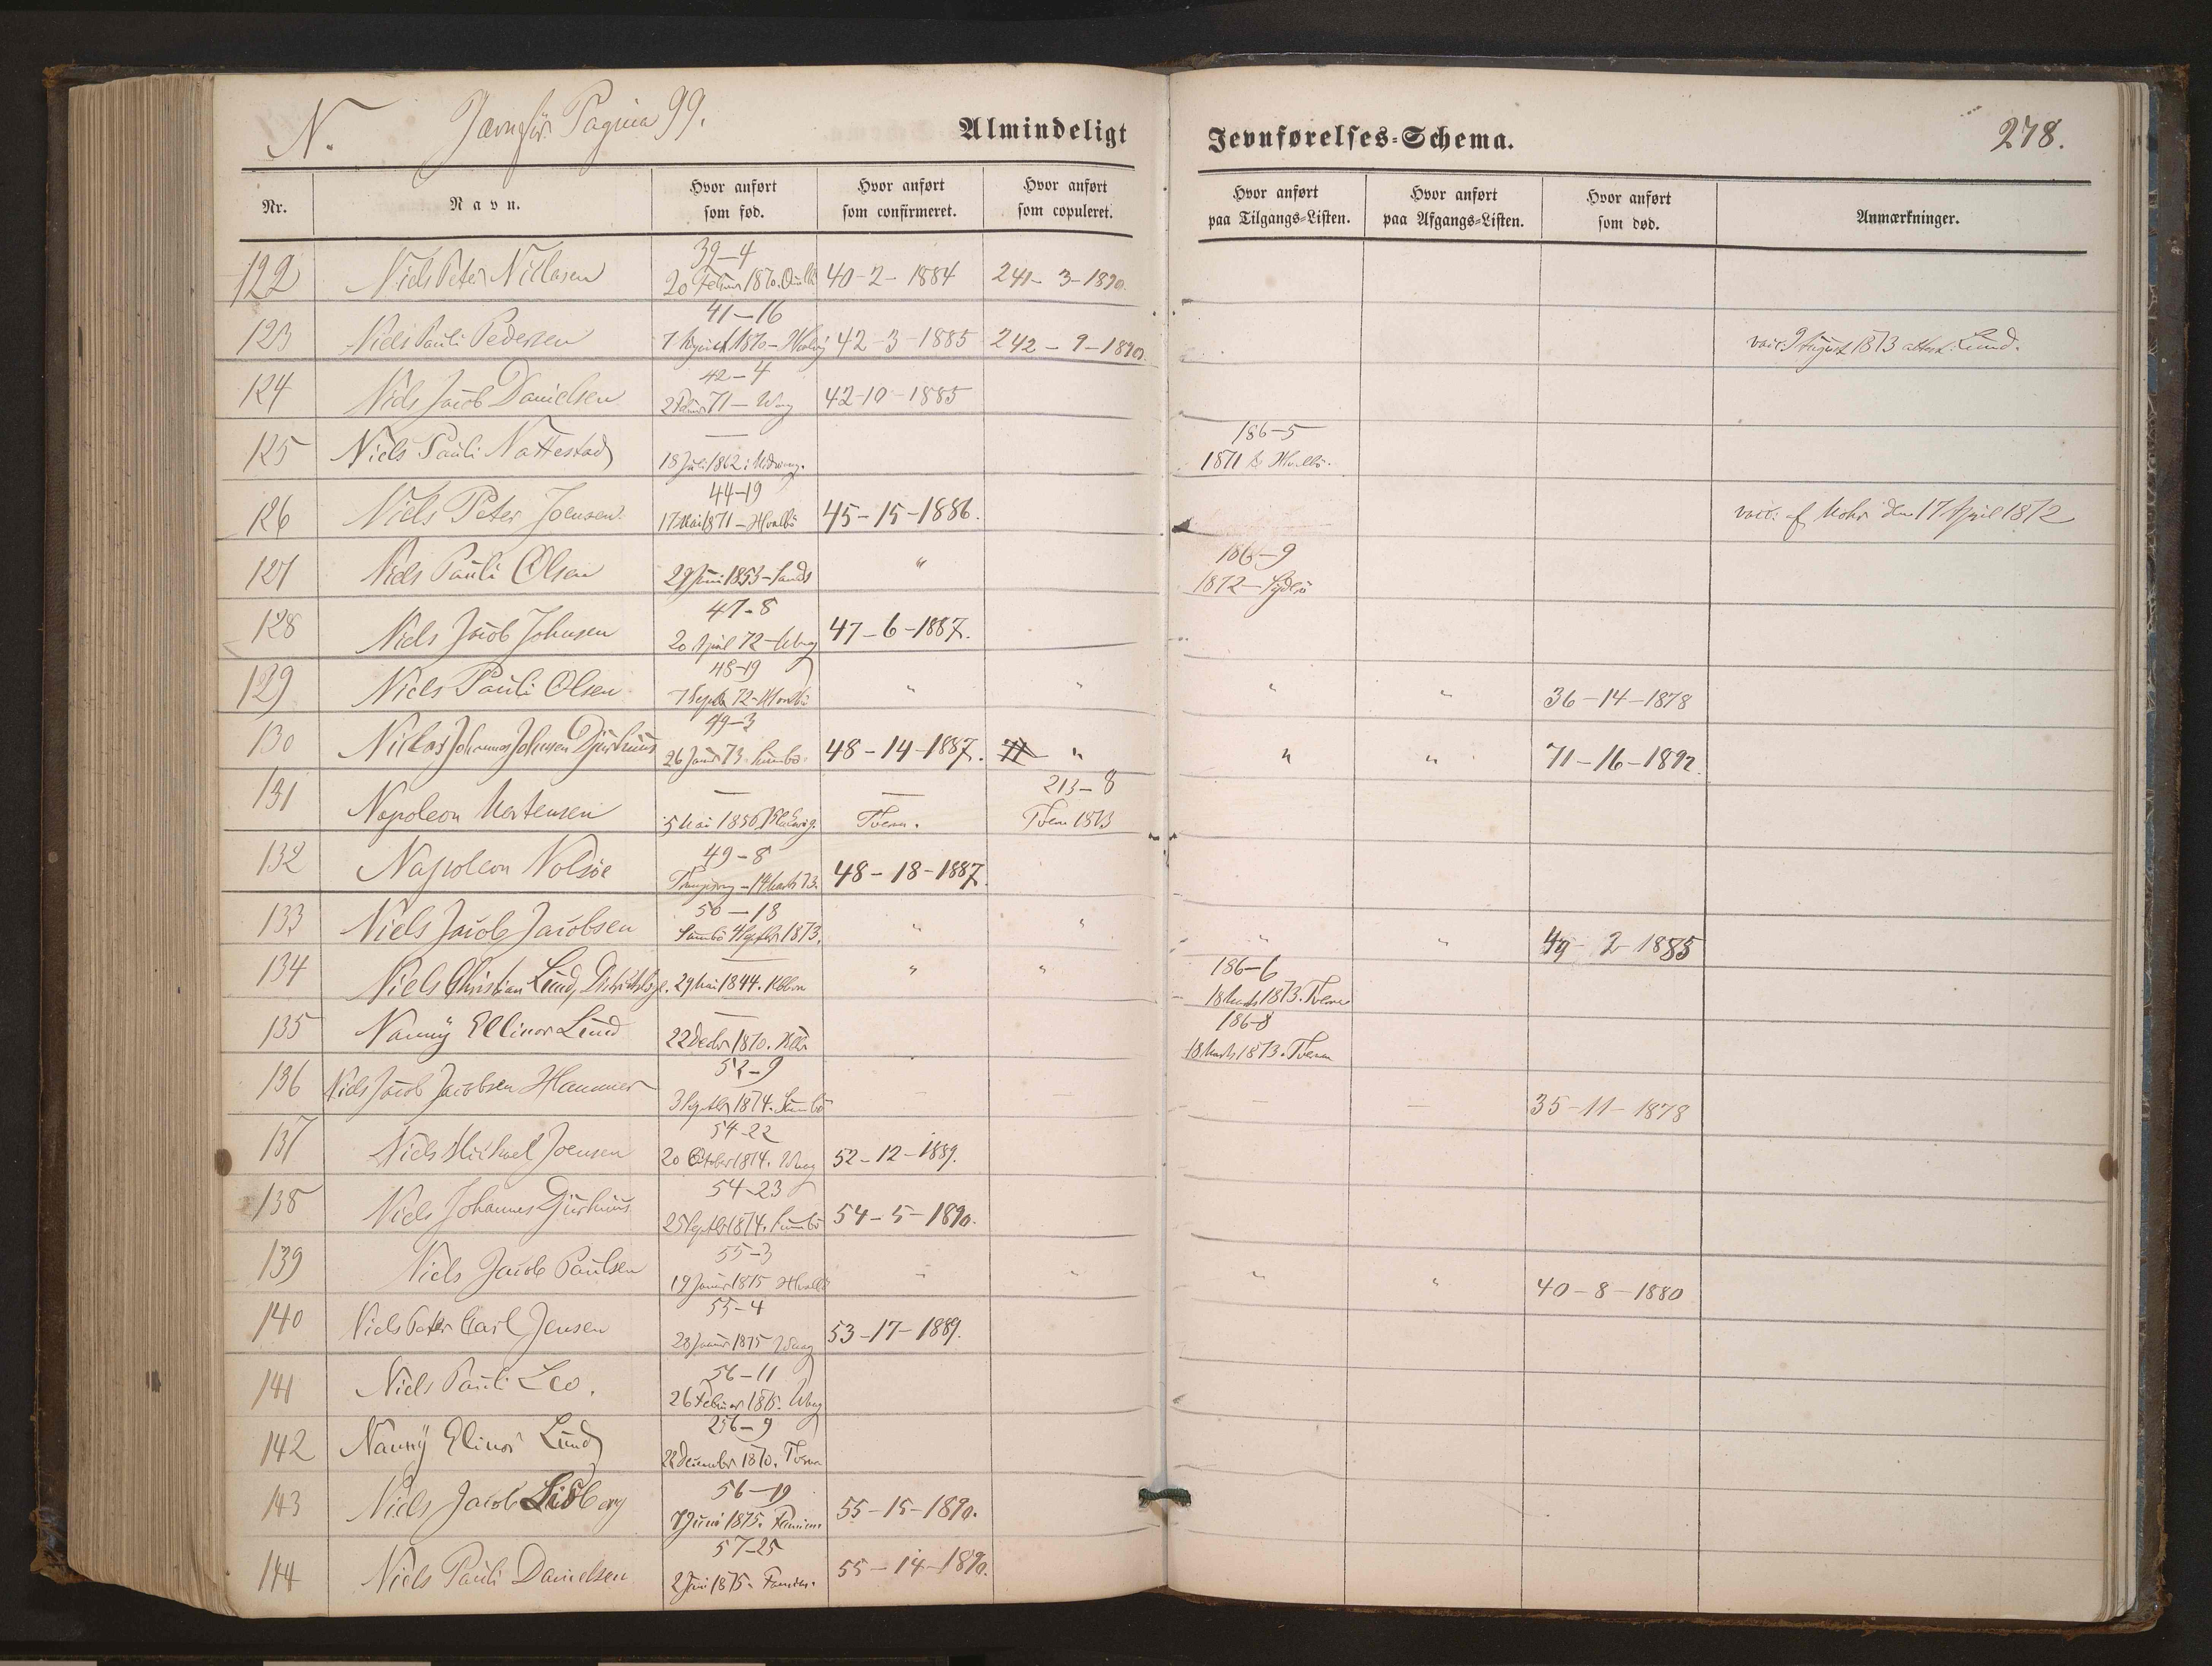 N. Jævnfør Pagina 99. Almindeligt Jevnførelses-Schema. 278.
Nr. Navn. Hvor anført som fød. Hvor anført som confirmeret. Hvor anført som copuleret. Hvor anført paa Tilgangs-Listen. Hvor anført paa Afgangs-Listen. Hvor anført som død. Anmærkninger.
39-4
122 Niels Peter Niclasen 20 Februar 1870. 40-2-1884 241-3-1890.
41-16
123 Niels Pauli Pedersen 7 August 1870- 42-3-1885 242-9-1890. vacc. 9 August 1873 attest. Lund.
42-4
124 Niels Jacob Danielsen 71- Waag 42-10-1885
— 186-5
125 Niels Pauli Nattestad 18 Juli 1862 i 1871 Hvalbö.
44-19
126 Niels Peter Joensen 17 Mai 1871-Hvalbö 45-15-1886. vacc. af Mohr den 17 April 1872
186-9
127 Niels Pauli Olsen 29 Juni 1853-Sands " 1872-
47-8
128 Niels Jacob Johnsen 20 April 72-Waag 47-6-1887.
48-19
129 Niels Pauli Olsen 7 Septbr 72-Hvalbö " " " " 36-14-1878
49-3
130 Niclas Johannes Johnsen Djurhuus 26 Janr 73. Sumbö. 48-14-1887. " " " 71-16-1892.
— — 213-8
131 Napoleon Mortensen 5 Mai 1850, Tveraa. Tvera 1873
49-8
132 Napoleon Nolsöe Trangisvog-14 Marts 73. 48-18-1887.
50-18
133 Niels Jacob Jacobsen Sumbö 4 Septbr 1873. " " " " 49-2-1885
— 186-6
134 Niels Christian Lund, 29 Mai 1844. Kbhvn " " 18 Marts 1873. Tveraa
— 186-8
135 Nanny Ellinor Lund 22 Decbr 1870. 18 Marts 1873. Tveraa
52-9
136 Niels Jacob Jacobsen Hammer 3 Septbr 1874. Sumbö — — — — 35-11-1878
54-22
137 Niels Michael Joensen 20 October 1874. Waag 52-12-1889.
54-23
138 Niels Johannes Djurhuus 25 Septbr 1874. Sumbö 54-5-1890.
55-3
139 Niels Jacob Paulsen 19 Januar 1875 Hvalbö " " " " 40-8-1880
55-4
140 Niels Peter Carl Jensen 28 Januar 1875 Waag 53-17-1889.
56-11
141 Niels Pauli Leo. 26 Februar 1875. Waag
256-9
142 Nanny Elinor Lund 22 December 1870. Tveraa
56-19
143 Niels Jacob Lidberg 7 Juni 1875. Famien. 55-15-1890.
57-25
144 Niels Pauli Danielsen 2 Juni 1875. Famien. 55-14-1890.